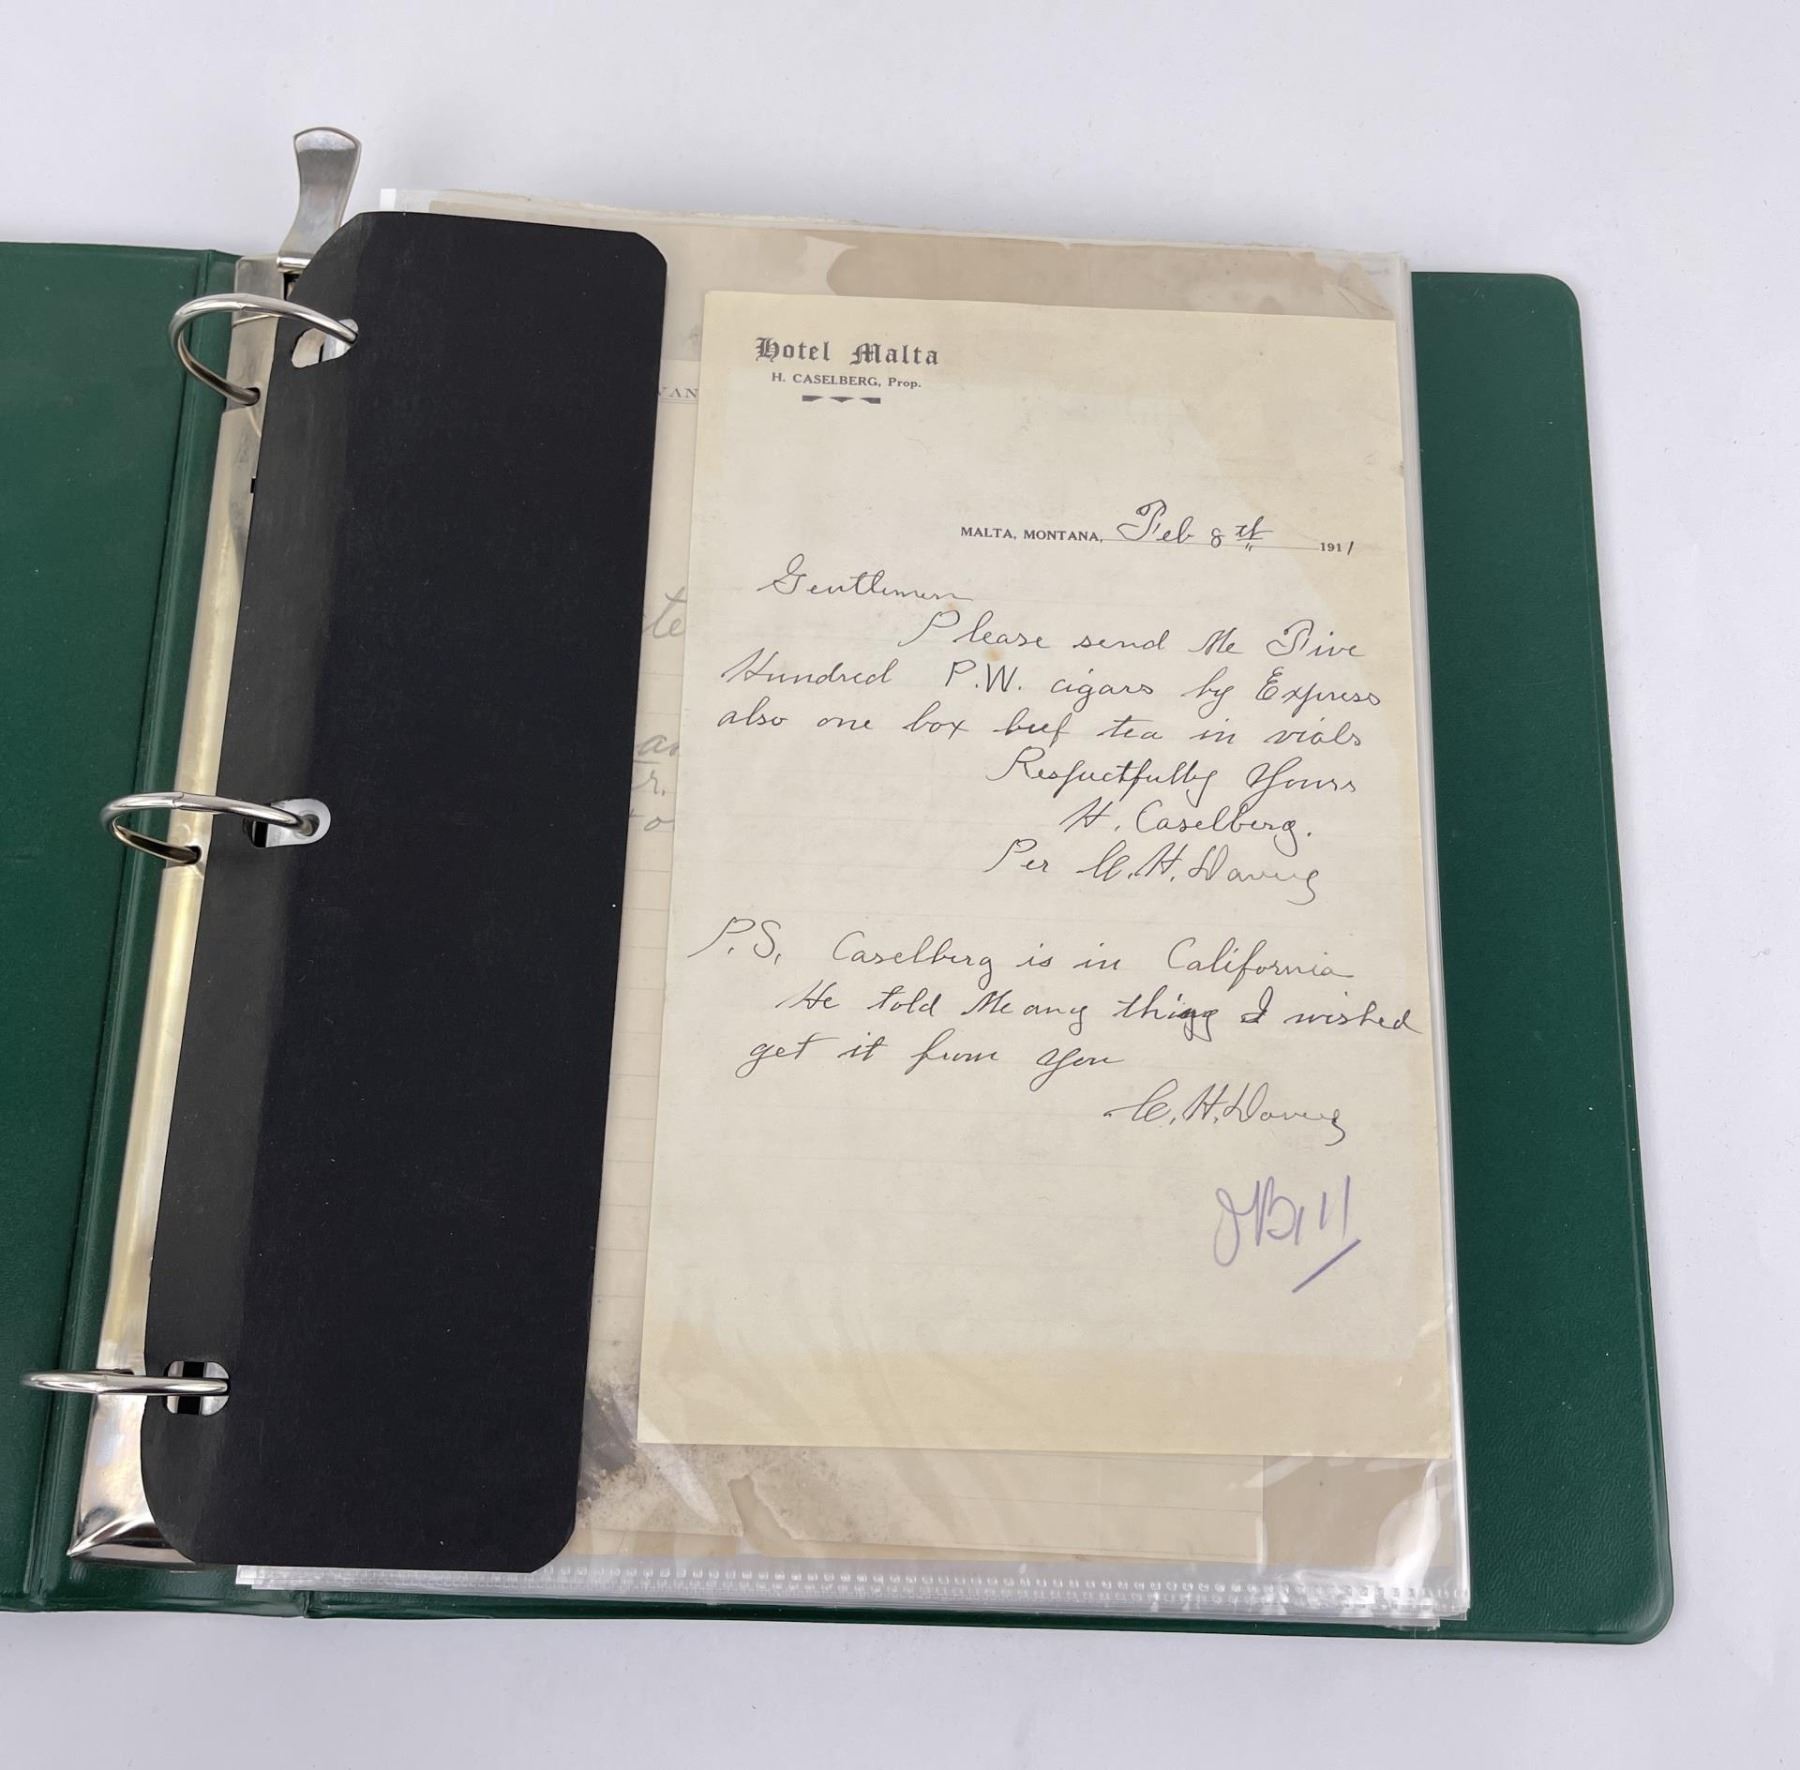 Hotel Malta
H. CASELBERG, Prop.
MALTA, MONTANA, Feb 8th 1911
Gentlemen
Please send Me Five
Hundred P.W. cigars by Express
also one box beef tea in vials
Respectfully Yours
H. Caselberg.
Per C.H.
P.S. Caselberg is in California
He told Me any thing I wished
get it from You
C.H.
VAN